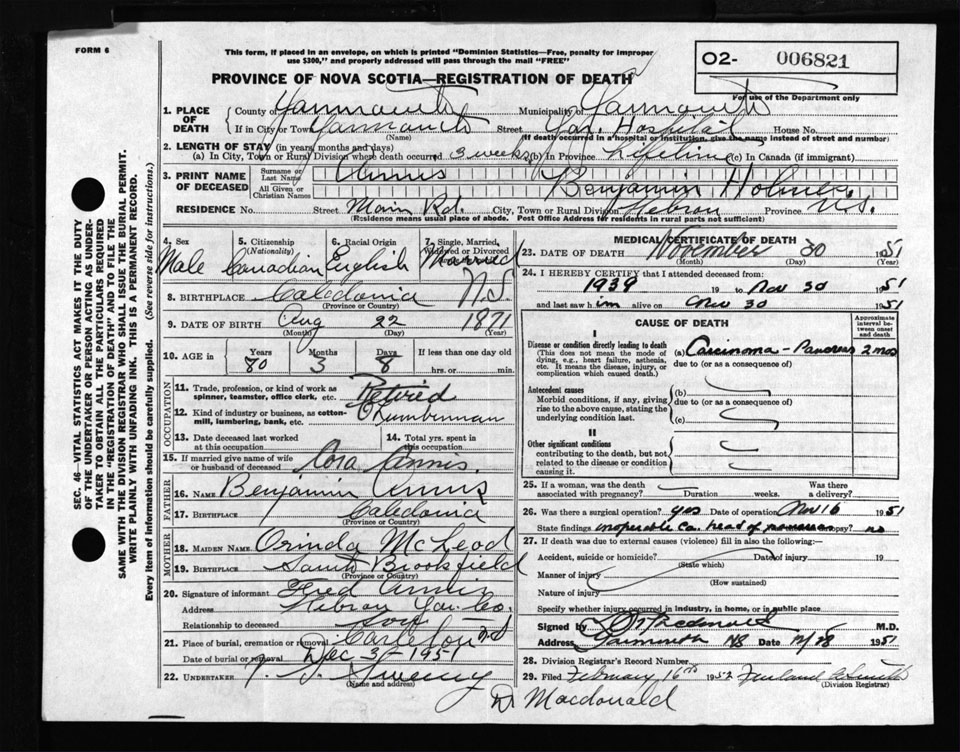 FORM 6
This form, if placed in an envelope, on which is printed "Dominion Statistics—Free, penalty for improper
use $300," and properly addressed will pass through the mail "FREE"
O2- 006821
For use of the Department only
PROVINCE OF NOVA SCOTIA—REGISTRATION OF DEATH
1. PLACE OF DEATH { County of Yarmouth Municipality of Yarmouth
If in City or Town Yarmouth Street Yar. Hospital House No.
(Name) (If death occurred in a hospital or institution, give the name instead of street and number)
2. LENGTH OF STAY (in years, months and days)
(a) In City, Town or Rural Division where death occurred 3 weeks (b) in Province Lifetime (c) In Canada (if immigrant)
3. PRINT NAME OF DECEASED { Surname or Last Name Annis
All Given or Christian Names Benjamin Holmes
RESIDENCE No. Street Main Rd. City, Town or Rural Division Hebron Province N.S.
(Residence means usual place of abode. Post Office Address for residents in rural parts not sufficient)
4. Sex Male
5. Citizenship (Nationality) Canadian
6. Racial Origin English
7. Single, Married, Widowed or Divorced Married
8. BIRTHPLACE Caledonia N.S.
(Province or Country)
9. DATE OF BIRTH Aug 22 1871
(Month) (Day) (Year)
10. AGE in Years 80 Months 3 Days 8 If less than one day old
hrs. or min.
OCCUPATION
11. Trade, profession, or kind of work as
spinner, teamster, office clerk, etc. Retired
12. Kind of industry or business, as cotton-
mill, lumbering, bank, etc. Lumberman
13. Date deceased last worked
at this occupation
14. Total yrs. spent in
this occupation
15. If married give name of wife
or husband of deceased Cora Annis.
FATHER
16. NAME Benjamin Annis
17. BIRTHPLACE Caledonia
(Province or Country)
MOTHER
18. MAIDEN NAME Orinda McLeod
19. BIRTHPLACE South Brookfield
(Province or Country)
20. Signature of informant Fred Annis
Address Hebron Yar. Co.
Relationship to deceased Son
21. Place of burial, cremation or removal Carleton N.S.
Date of burial or removal Dec 3 - 1951
22. UNDERTAKER Sweeny
(Name and address)
MEDICAL CERTIFICATE OF DEATH
23. DATE OF DEATH November 30 1951
(Month) (Day) (Year)
24. I HEREBY CERTIFY that I attended deceased from
1939 19 to Nov 30 1951
and last saw him alive on Nov 30 1951
CAUSE OF DEATH
Approximate interval between onset and death
I
Disease or condition directly leading to death
(This does not mean the mode of
dying, e.g., heart failure, asthenia,
etc. It means the disease, injury, or
complication which caused death.)
(a) Carcinoma - Pancreas 2 mos
due to (or as a consequence of)
Antecedent causes
Morbid conditions, if any, giving
rise to the above cause, stating the
underlying condition last.
(b)
due to (or as a consequence of)
(c)
II
Other significant conditions
contributing to the death, but not
related to the disease or condition
causing it.
25. If a woman, was the death
associated with pregnancy? Duration weeks. Was there
a delivery?
26. Was there a surgical operation? yes Date of operation Nov 16 1951
State findings inoperable Ca. head of pancreas no
27. If death was due to external causes (violence) fill in also the following:
Accident, suicide or homicide? Date of injury 19
(State which)
Manner of injury
(How sustained)
Nature of injury
Specify whether injury occurred in industry, in home, or in public place
Signed by D Macdonald M.D.
Address Yarmouth NS Date 12/28 1951
28. Division Registrar's Record Number
29. Filed February 16th 1952
(Division Registrar)
Dr Macdonald
SEC. 46—VITAL STATISTICS ACT MAKES IT THE DUTY
OF THE UNDERTAKER OR PERSON ACTING AS UNDER-
TAKER TO OBTAIN ALL THE PARTICULARS REQUIRED
IN THE "REGISTRATION OF DEATH" AND TO FILE THE
SAME WITH THE DIVISION REGISTRAR WHO SHALL ISSUE THE BURIAL PERMIT.
WRITE PLAINLY WITH UNFADING INK. THIS IS A PERMANENT RECORD.
Every item of information should be carefully supplied. (See reverse side for instructions.)